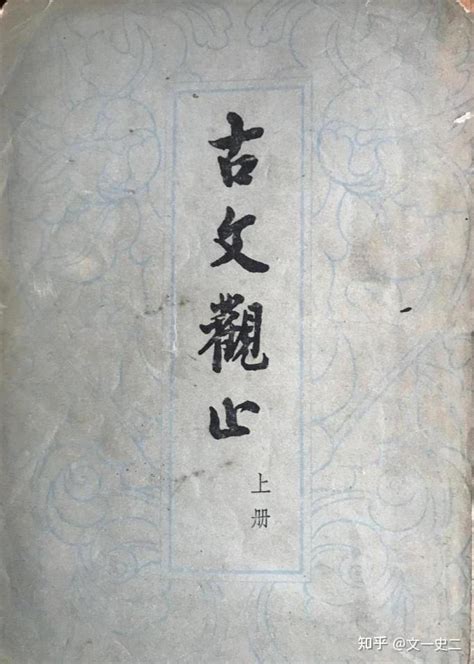 古文觀止
上册
知乎 @文一史二